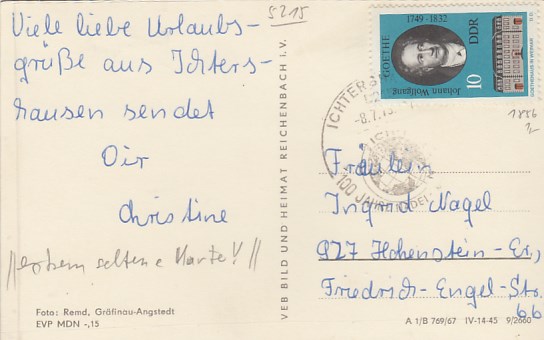 5215
Viele liebe Urlaubs-
grüße aus Ichters-
hausen sendet
Dir
Christine
seltene Karte!
Foto: Remd, Gräfinau-Angstedt
EVP MDN -,15
VEB BILD UND HEIMAT REICHENBACH I. V.
1749-1832
GOETHE
DDR
Johann Wolfgang
10
ICHTERS
-8.7.75
100 JAHR
1856
Fräulein
Ingrid Nagel
927 Hohenstein-Er.,
Friedrich-Engel-Str.
66
A 1/B 769/67 IV-14-45 9/2660